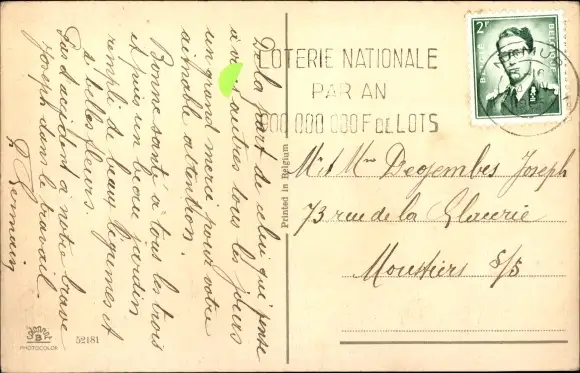 De la part de celui qui pense
à vous autres tous les jours
un grand merci pour votre
aimable attention.
Bonne santé à tous les trois
et puis un beau jardin
rempli de beaux légumes et
de belles fleurs.
Pas d'accident à notre brave
Joseph dans le travail.
Romain
LOTERIE NATIONALE
PAR AN
000 000 000 F DE LOTS
2F
BELGIE
BELGIQUE
NAMUR
Printed in Belgium
Mr et Mme Degembes Joseph
73 rue de la Glacerie
Moustiers S/S
PHOTOCOLOR
52181